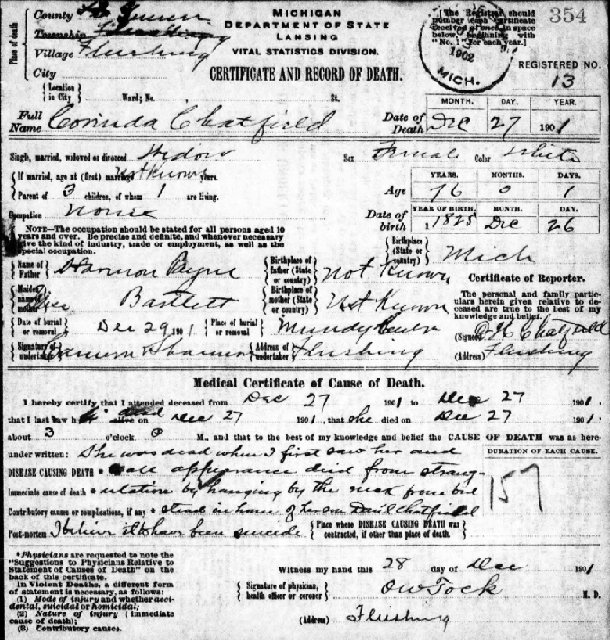 County Genesee
MICHIGAN
Township Flushing
DEPARTMENT OF STATE
Village Flushing
LANSING
VITAL STATISTICS DIVISION.
City
CERTIFICATE AND RECORD OF DEATH.
Place of death
1902
MICH.
The Registrar should
number each certificate
354
REGISTERED NO.
13
Location in City
Ward; No. St.
Full Name Corinda Chatfield
Date of Death
MONTH. DAY. YEAR.
Dec 27 1901
Single, married, widowed or divorced Widow
Sex Female Color White
If married, age at (first) marriage Not Known years.
Parent of 3 children, of whom 1 are living.
Age
YEARS. MONTHS. DAYS.
76 0 1
Occupation None
Date of birth
YEAR OF BIRTH. MONTH. DAY.
1825 Dec 26
NOTE—The occupation should be stated for all persons aged 10
years and over. Be precise and definite, and whenever necessary
give the kind of industry, trade or employment, as well as the
special occupation.
Birthplace (State or country) Mich
Name of Father Harmon Payne
Birthplace of father (State or country) Not Known
Maiden name of mother Bartlett
Birthplace of mother (State or country) Not Known
Certificate of Reporter.
The personal and family particulars
herein given relative to deceased
are true to the best of my
knowledge and belief.
(Signed) Chatfield
(Address) Flushing
Date of burial or removal Dec 29 1901
Place of burial or removal Mundy
Signature of undertaker
Address of undertaker Flushing
Medical Certificate of Cause of Death.
I hereby certify that I attended deceased from Dec 27 1901 to Dec 27 1901
that I last saw h dead alive on Dec 27 1901, that she died on Dec 27 1901
about 3 o'clock P M., and that to the best of my knowledge and belief the CAUSE OF DEATH was as here-
under written: She was dead when I first saw her and
DURATION OF EACH CAUSE.
DISEASE CAUSING DEATH * appearance died from strang-
Immediate cause of death * ulation by hanging by the neck
157
Contributory cause or complications, if any * in house of her son David Chatfield
Post-mortem I believe it to have been suicide
Place where DISEASE CAUSING DEATH was
contracted, if other than place of death.
*Physicians are requested to note the
"Suggestions to Physicians Relative to
Statement of Causes of Death" on the
back of this certificate.
In Violent Deaths, a different form
of statement is necessary, as follows:
(1) Mode of injury and whether accidental,
suicidal or homicidal;
(2) Nature of injury (immediate
cause of death);
(3) Contributory causes.
Witness my hand this 28 day of Dec 1901
Signature of physician,
health officer or coroner O W Tock M. D.
(Address) Flushing